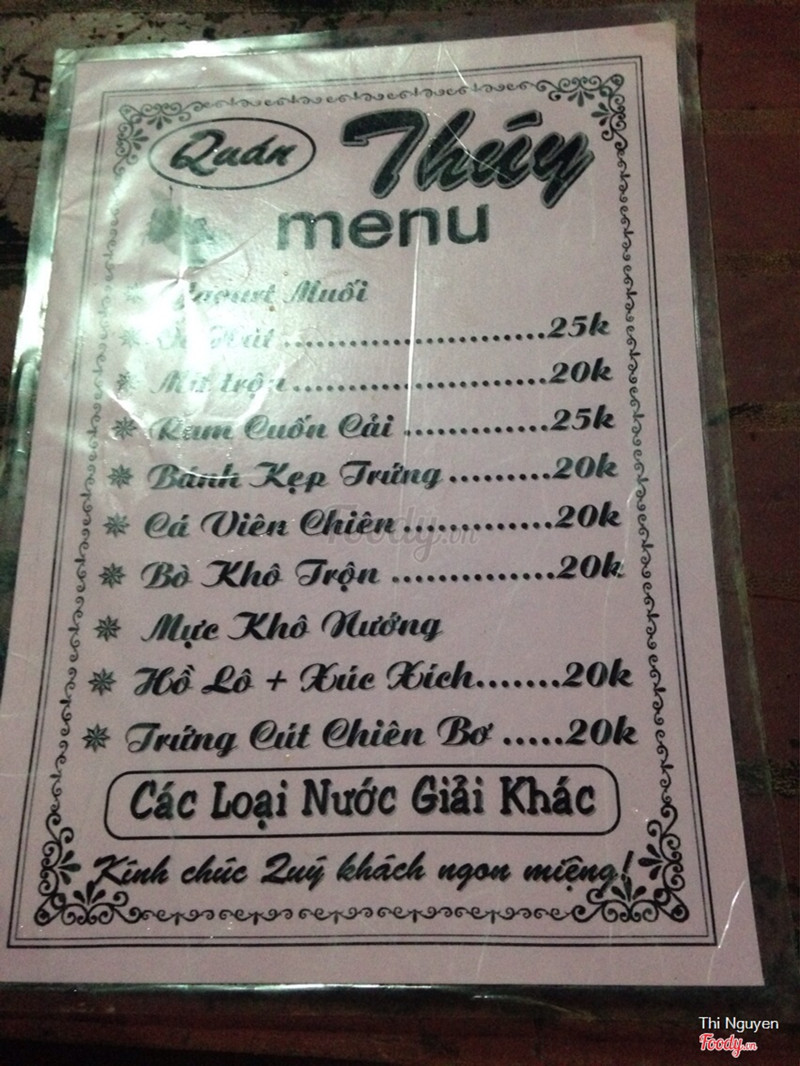 Quán Thúy
menu
Yaourt Muối
Ốc Hút ........................25k
Mít trộn........................20k
Ram Cuốn Cải .............25k
Bánh Kẹp Trứng .........20k
Cá Viên Chiên .............20k
Bò Khô Trộn ..............20k
Mực Khô Nướng
Hồ Lô + Xúc Xích.......20k
Trứng Cút Chiên Bơ .....20k
Các Loại Nước Giải Khác
Kính chúc Quý khách ngon miệng!
Foody.vn
Thi Nguyen
Foody.vn